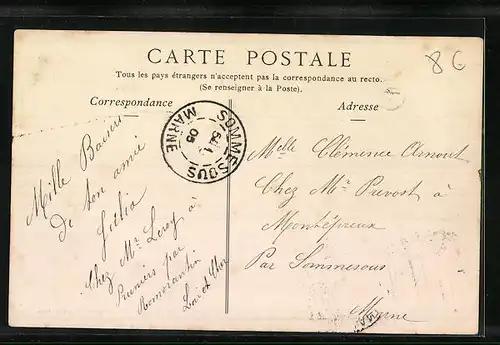 CARTE POSTALE
Tous les pays étrangers n'acceptent pas la correspondance au recto.
(Se renseigner à la Poste).
Correspondance
Adresse
SOMMESOUS
05
MARNE
Mille Baisers
de ton amie
Julia
Chez Mr Leroy à
Pruniers par
Romorantin
Loir et Cher
Melle Clémence Arnout
Chez Mr Prevost à
Montépreux
Par Sommesous
Marne